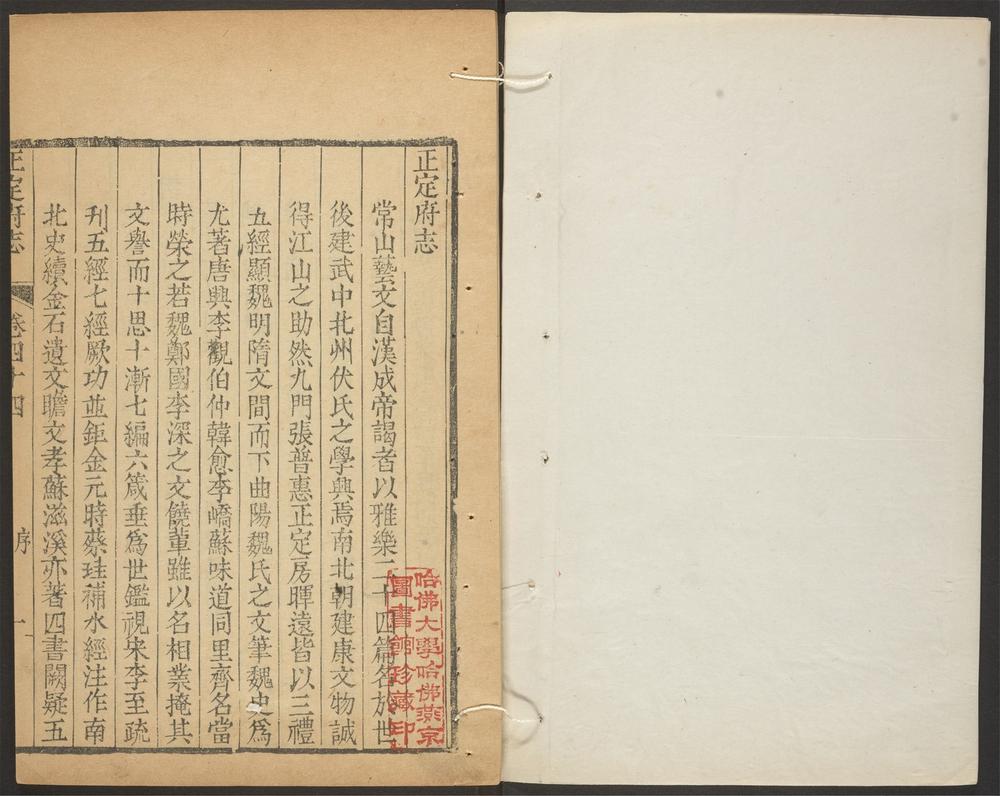 正定府志
常山藝文自漢成帝謁者以雅樂二十四篇名於世
後建武中北州伏氏之學興焉南北朝建康文物誠
得江山之助然九門張普惠正定房暉遠皆以三禮
五經顯魏明隋文間而下曲陽魏氏之文筆魏史爲
尤著唐興李觀伯仲韓愈李嶠蘇味道同里齊名當
時榮之若魏鄭國李深之文饒輩雖以名相業掩其
文譽而十思十漸七編六箴垂爲世鑑視宋李至疏
刋五經七經厥功並鉅金元時蔡珪補水經注作南
北史續金石遺文瞻文孝蘇滋溪亦著四書闕疑五
正定府志 卷四十四 序 一
哈佛大學哈佛燕京
圖書館珍藏印